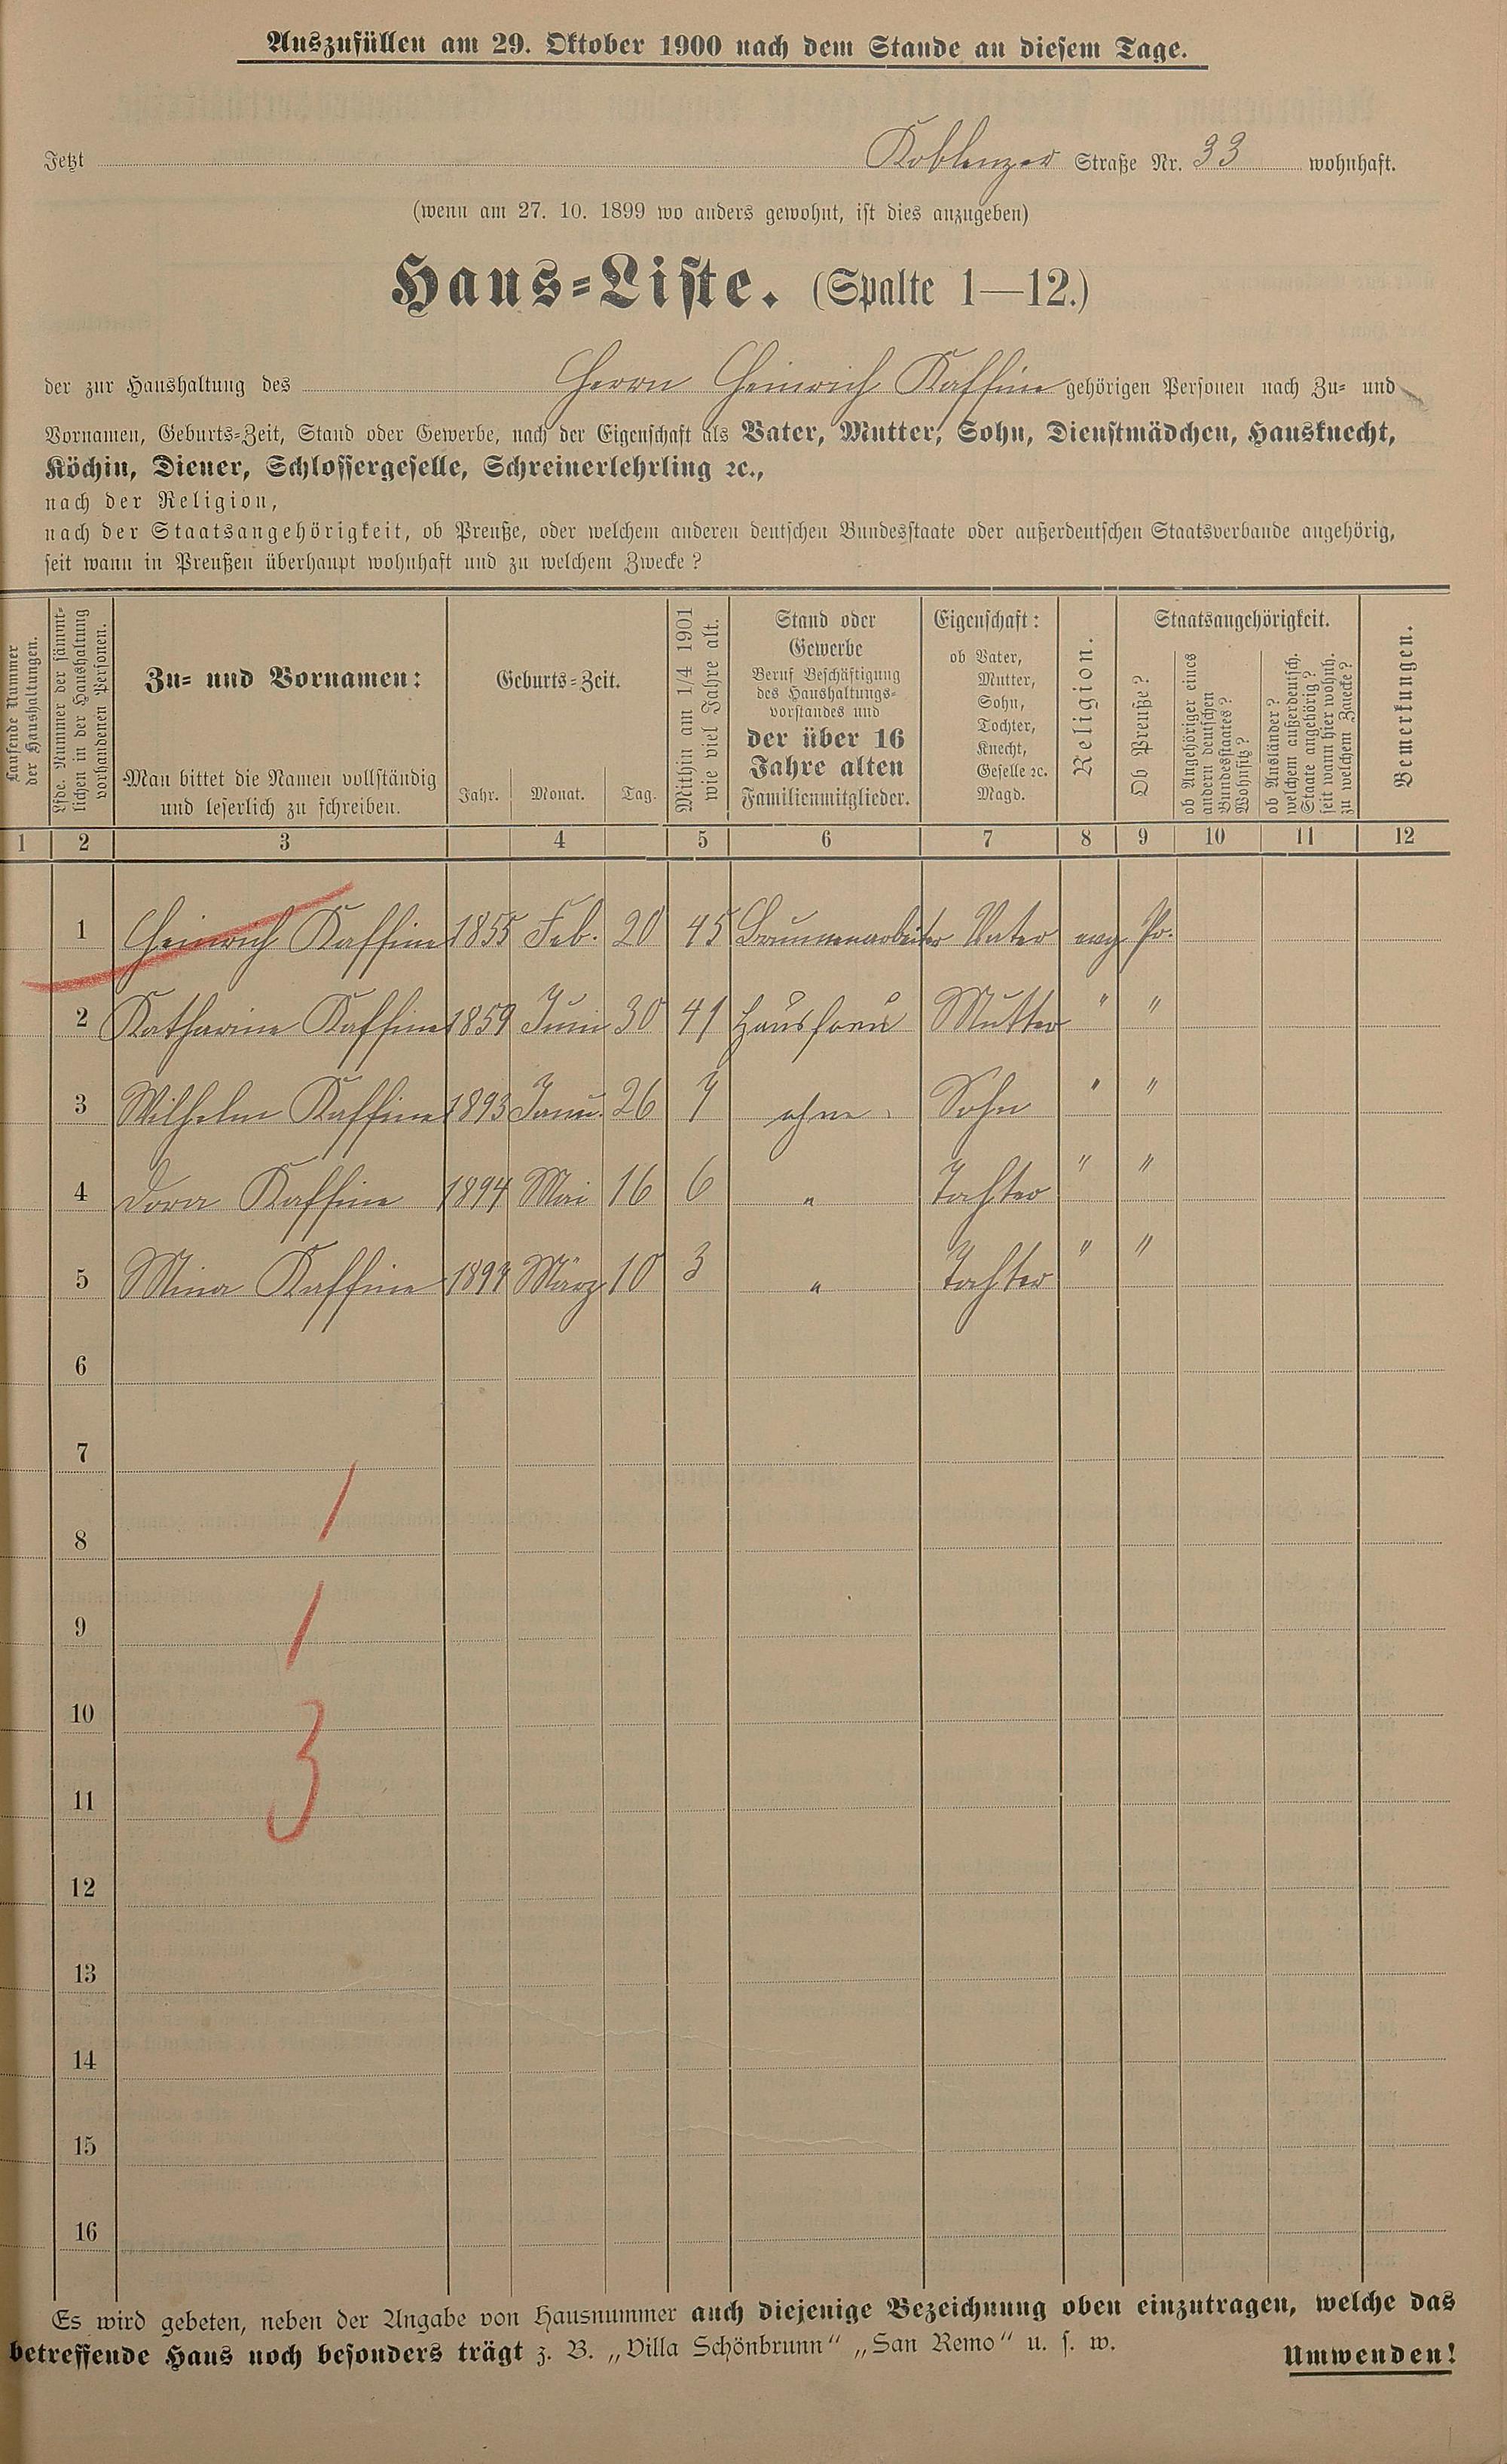 Auszufüllen am 29. Oktober 1900 nach dem Stande an diesem Tage.
Jetzt Koblenzer Straße Nr. 33 wohnhaft.
(wenn am 27. 10. 1899 wo anders gewohnt, ist dies anzugeben)
Haus-Liste. (Spalte 1—12.)
der zur Haushaltung des Herrn Heinrich Kaffine gehörigen Personen nach Zu- und
Vornamen, Geburts-Zeit, Stand oder Gewerbe, nach der Eigenschaft als Vater, Mutter, Sohn, Dienstmädchen, Hausknecht,
Köchin, Diener, Schlossergeselle, Schreinerlehrling ꝛc.,
nach der Religion,
nach der Staatsangehörigkeit, ob Preuße, oder welchem anderen deutschen Bundesstaate oder außerdeutschen Staatsverbande angehörig,
seit wann in Preußen überhaupt wohnhaft und zu welchem Zwecke?
Laufende Nummer
der Haushaltungen.
Lfde. Nummer der sämmt-
lichen in der Haushaltung
vorhandenen Personen.
Zu- und Vornamen:
Man bittet die Namen vollständig
und leserlich zu schreiben.
Geburts-Zeit.
Jahr. Monat. Tag.
Mithin am 1/4 1901
wie viel Jahre alt.
Stand oder
Gewerbe
Beruf Beschäftigung
des Haushaltungs-
vorstandes und
der über 16
Jahre alten
Familienmitglieder.
Eigenschaft:
ob Vater,
Mutter,
Sohn,
Tochter,
Knecht,
Geselle ꝛc.
Magd.
Religion.
Staatsangehörigkeit.
Ob Preuße?
ob Angehöriger eines
andern deutschen
Bundesstaates?
Wohnsitz?
ob Ausländer?
welchem außerdeutsch.
Staate angehörig?
seit wann hier wohnh.
zu welchem Zwecke?
Bemerkungen.
1 2 3 4 5 6 7 8 9 10 11 12
1 Heinrich Kaffine 1855 Feb. 20 45 Brunnenarbeiter Vater evg. Pr.
2 Katharine Kaffine 1859 Juni 30 41 Hausfrau Mutter " "
3 Wilhelm Kaffine 1893 Janu. 26 7 ohne. Sohn " "
4 Dora Kaffine 1894 Mai 16 6 " Tochter " "
5 Mina Kaffine 1897 März 10 3 " Tochter " "
6
7
8 1
9 1
10
11 3
12
13
14
15
16
Es wird gebeten, neben der Angabe von Hausnummer auch diejenige Bezeichnung oben einzutragen, welche das
betreffende Haus noch besonders trägt z. B. „Villa Schönbrunn" „San Remo" u. s. w.
Umwenden!